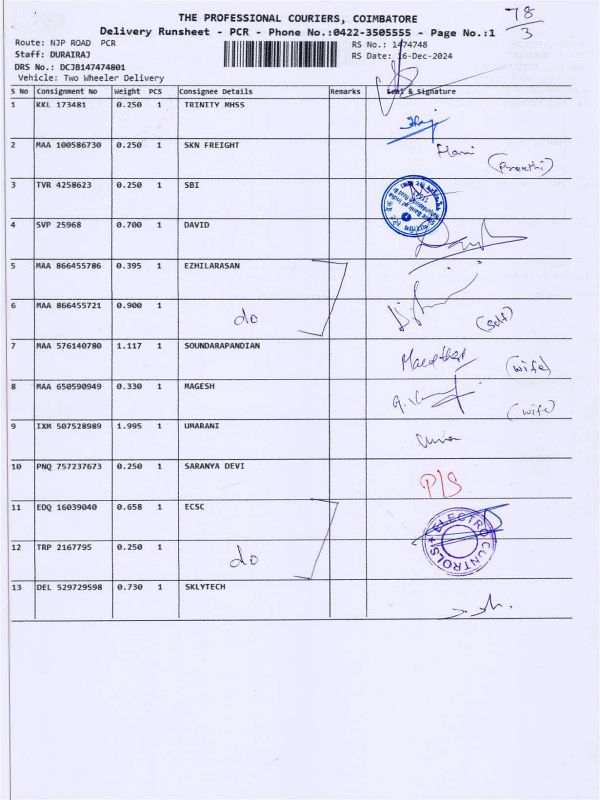 78
3
THE PROFESSIONAL COURIERS, COIMBATORE
Delivery Runsheet - PCR - Phone No.:0422-3505555 - Page No.:1
Route: NJP ROAD PCR
RS No.: 1474748
Staff: DURAIRAJ
RS Date: 16-Dec-2024
DRS No.: DCJB147474801
Vehicle: Two Wheeler Delivery
S No Consignment No Weight PCS Consignee Details Remarks Seal & Signature
1 KKL 173481 0.250 1 TRINITY MHSS
2 MAA 100586730 0.250 1 SKN FREIGHT
(Preethi)
3 TVR 4258623 0.250 1 SBI
4 SVP 25968 0.700 1 DAVID
5 MAA 866455786 0.395 1 EZHILARASAN
6 MAA 866455721 0.900 1 do (self)
7 MAA 576140780 1.117 1 SOUNDARAPANDIAN
(wife)
8 MAA 650590949 0.330 1 MAGESH
(wife)
9 IXM 507528989 1.995 1 UMARANI Uma
10 PNQ 757237673 0.250 1 SARANYA DEVI P/S
11 EDQ 16039040 0.658 1 ECSC
ELECTRO CONTROLS
12 TRP 2167795 0.250 1 do
13 DEL 529729598 0.730 1 SKLYTECH